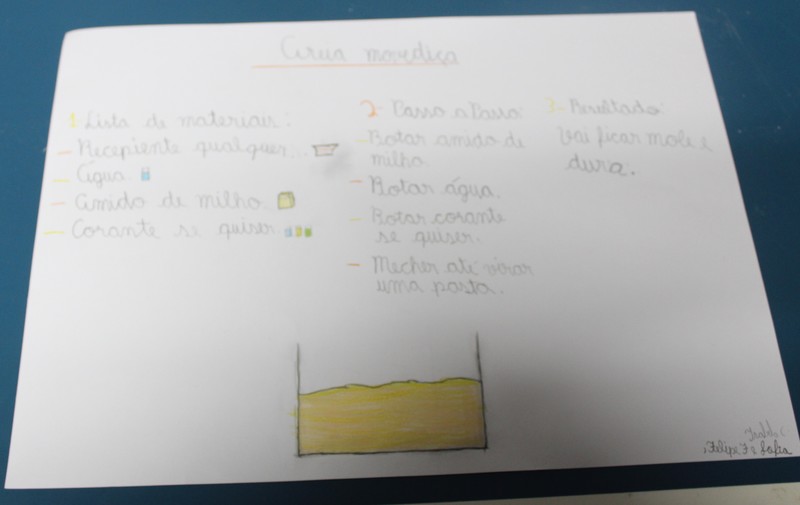 Areia movediça
1 Lista de materiais:
- Recepiente qualquer...
- Água
- Amido de milho
- Corante se quiser
2- Passo a Passo:
- Botar amido de
milho.
- Botar água.
- Botar corante
se quiser.
- Mecher até virar
uma pasta.
3- Resultado:
Vai ficar mole e
dura.
Felipe F e Sofia